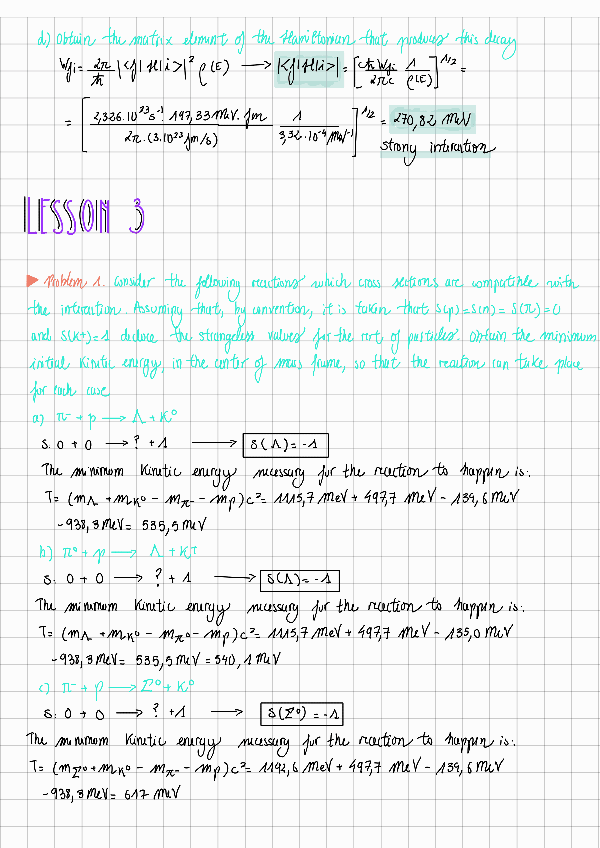 d) Obtain the matrix element of the Hamiltonian that produces this decay
Wfi = 2π/ħ |<f|H|i>|² ρ(E) → |<f|H|i>| = [cħWfi/2πc 1/ρ(E)]^1/2 =
= [2,326·10²³ s⁻¹ 197,33 MeV·fm / 2π·(3·10²³ fm/s) 1/3,32·10⁻⁴ MeV⁻¹]^1/2 = 270,82 MeV
strong interaction
LESSON 3
▶ Problem 1. Consider the following reactions which cross sections are compatible with
the interaction. Assuming that, by convention, it is taken that S(p)=S(n)=S(π)=0
and S(K+)=1 deduce the strangeness values for the rest of particles. Obtain the minimum
initial kinetic energy, in the center of mass frame, so that the reaction can take place
for each case
a) π⁻ + p → Λ + K⁰
S: 0 + 0 → ? + 1 → S(Λ) = -1
The minimum kinetic energy necessary for the reaction to happen is:
T = (mΛ + mK⁰ - mπ⁻ - mp)c² = 1115,7 MeV + 497,7 MeV - 139,6 MeV
- 938,3 MeV = 535,5 MeV
b) π⁰ + p → Λ + K⁺
S: 0 + 0 → ? + 1 → S(Λ) = -1
The minimum kinetic energy necessary for the reaction to happen is:
T = (mΛ + mK⁰ - mπ⁰ - mp)c² = 1115,7 MeV + 497,7 MeV - 135,0 MeV
- 938,3 MeV = 535,5 MeV = 540,1 MeV
c) π⁻ + p → Σ⁰ + K⁰
S: 0 + 0 → ? + 1 → S(Σ⁰) = -1
The minimum kinetic energy necessary for the reaction to happen is:
T = (mΣ⁰ + mK⁰ - mπ⁻ - mp)c² = 1192,6 MeV + 497,7 MeV - 139,6 MeV
- 938,3 MeV = 617 MeV